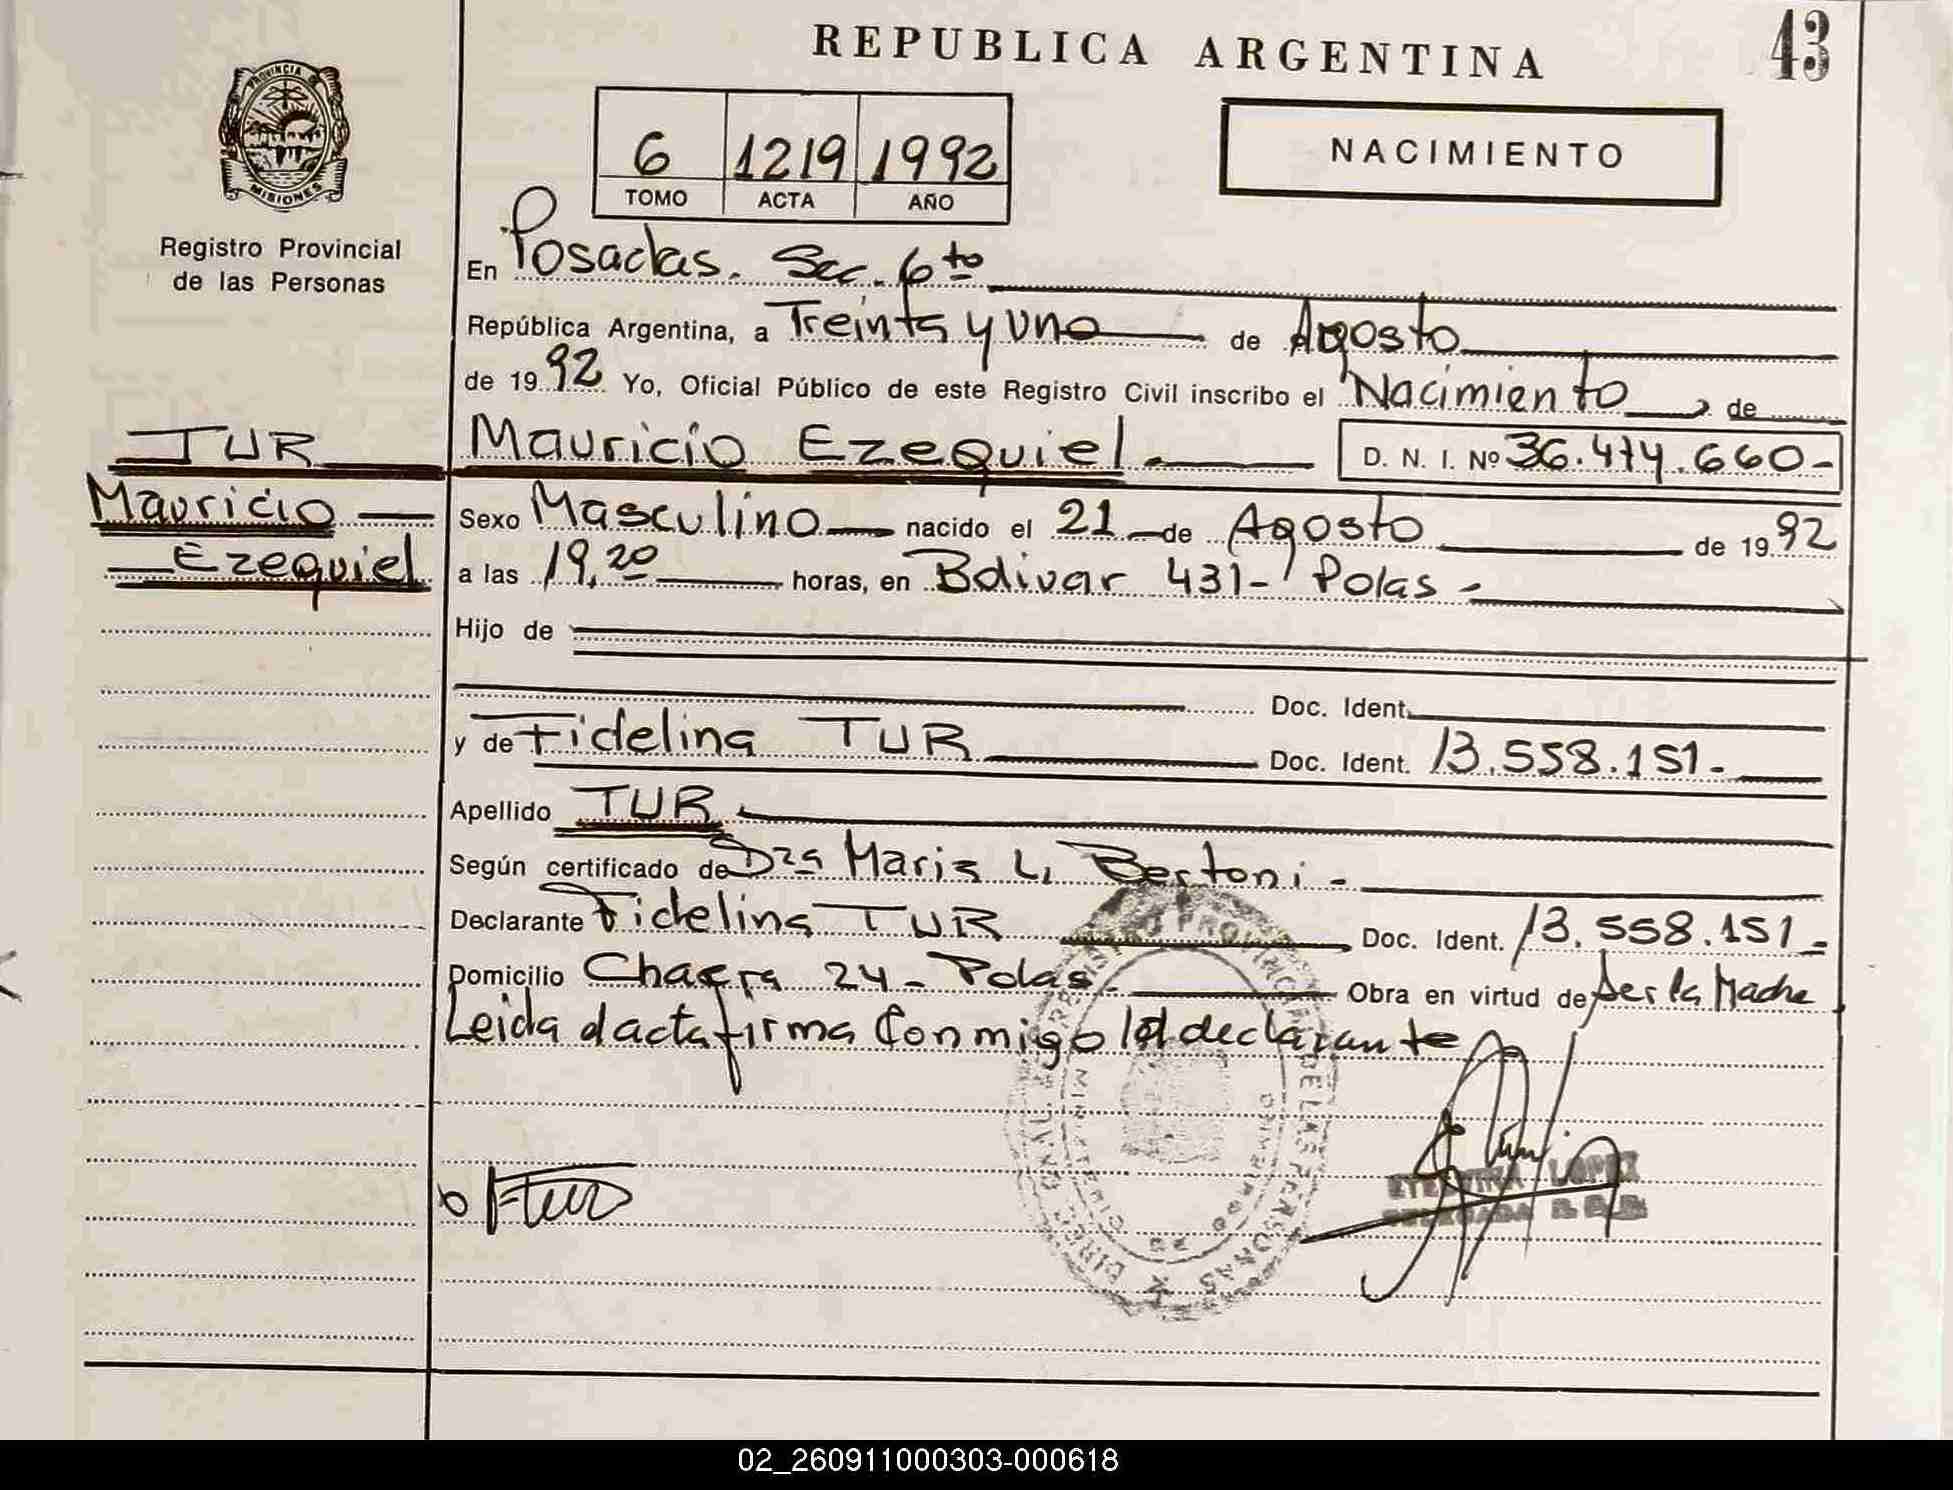 REPUBLICA ARGENTINA
43
PROVINCIA DE
MISIONES
Registro Provincial
de las Personas
6 1219 1992
TOMO ACTA AÑO
NACIMIENTO
En Posadas. Sec. 6to
República Argentina, a Treinta y uno de Agosto
de 1992 Yo, Oficial Público de este Registro Civil inscribo el Nacimiento, de
TUR
Mauricio
Ezequiel
Mauricio Ezequiel. D. N. I. Nº 36.474.660-
Sexo Masculino nacido el 21 de Agosto de 1992
a las 19,20 horas, en Bolivar 431- Pdas-
Hijo de
Doc. Ident.
y de Fidelina TUR Doc. Ident. 13.558.151-
Apellido TUR
Según certificado de Dra Maria L. Bertoni-
Declarante Fidelina TUR Doc. Ident. 13.558.151-
Domicilio Chacra 24- Pdas. Obra en virtud de ser la Madre
Leida el acta firma conmigo la declarante
F Tur
ETELVINA LOPEZ
DELEGADA
02_260911000303-000618